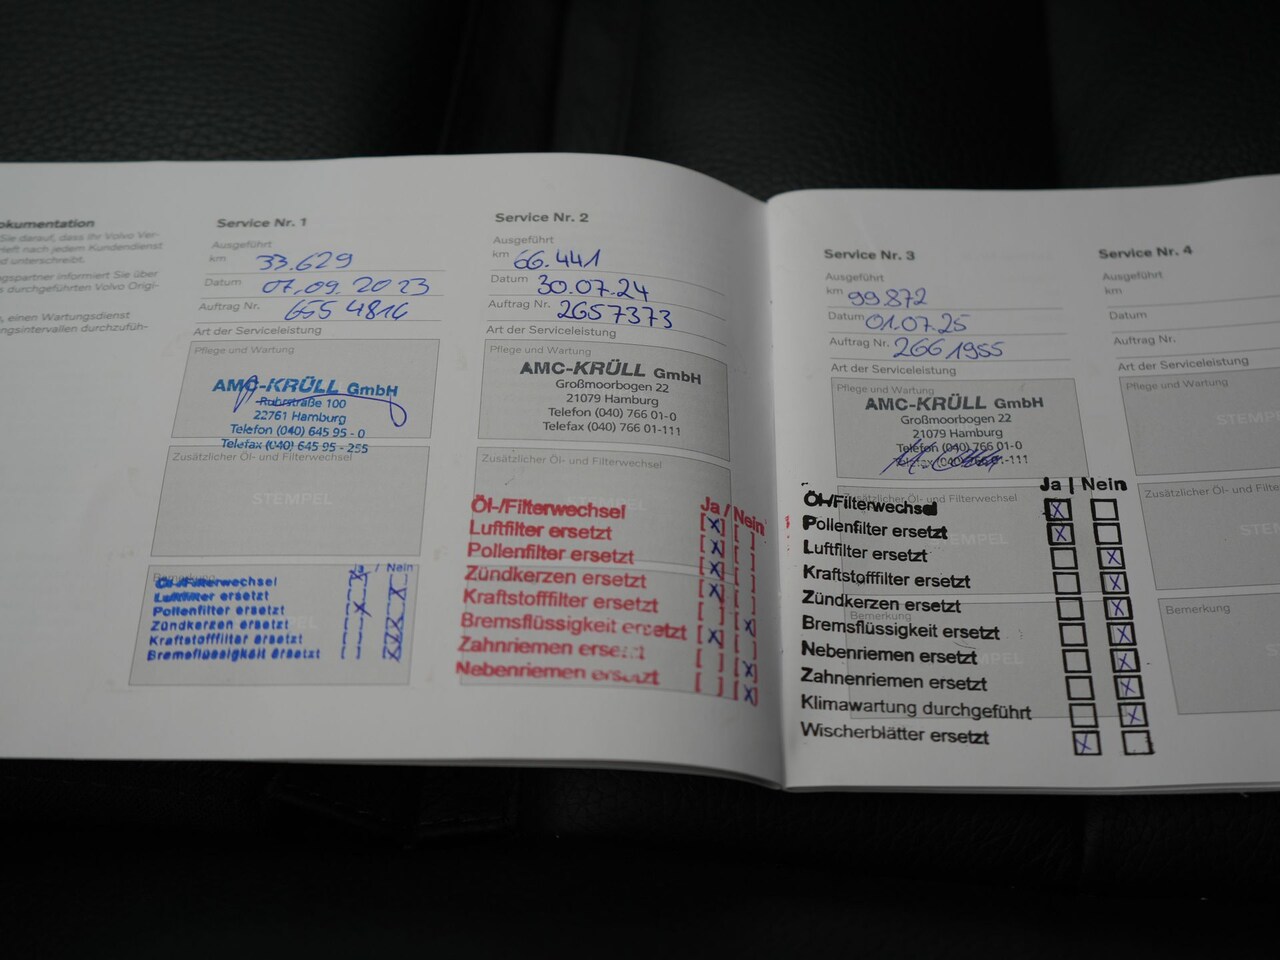 okumentation
Sie darauf, dass Ihr Volvo Ver-
rieft nach jedem Kundendienst
d unterschreibt.
gspartner informiert Sie über
s durchgeführten Volvo Origi-
, einen Wartungsdienst
ngsintervallen durchzufüh-
Service Nr. 1
Ausgeführt
km 33.629
Datum 07.09.2023
Auftrag Nr. 655 4816
Art der Serviceleistung
Pflege und Wartung
AMC-KRÜLL GmbH
Ruhrstraße 100
22761 Hamburg
Telefon (040) 645 95 - 0
Telefax (040) 645 95 - 255
Zusätzlicher Öl- und Filterwechsel
STEMPEL
Bemerkung
Ja / Nein
Öl-/Filterwechsel [X] [ ]
Luftfilter ersetzt [ ] [X]
Pollenfilter ersetzt [X] [ ]
Zündkerzen ersetzt [ ] [X]
Kraftstofffilter ersetzt [ ] [X]
Bremsflüssigkeit ersetzt [ ] [X]
Service Nr. 2
Ausgeführt
km 66.441
Datum 30.07.24
Auftrag Nr. 2657373
Art der Serviceleistung
Pflege und Wartung
AMC-KRÜLL GmbH
Großmoorbogen 22
21079 Hamburg
Telefon (040) 766 01-0
Telefax (040) 766 01-111
Zusätzlicher Öl- und Filterwechsel
Ja / Nein
Öl-/Filterwechsel [X] [ ]
Luftfilter ersetzt [X] [ ]
Pollenfilter ersetzt [X] [ ]
Zündkerzen ersetzt [X] [ ]
Kraftstofffilter ersetzt [ ] [X]
Bremsflüssigkeit ersetzt [X] [ ]
Zahnriemen ersetzt [ ] [X]
Nebenriemen ersetzt [ ] [X]
Service Nr. 3
Ausgeführt
km 99.872
Datum 01.07.25
Auftrag Nr. 2661955
Art der Serviceleistung
Pflege und Wartung
AMC-KRÜLL GmbH
Großmoorbogen 22
21079 Hamburg
Telefon (040) 766 01-0
Telefax (040) 766 01-111
Zusätzlicher Öl- und Filterwechsel
Ja | Nein
Öl-/Filterwechsel
Pollenfilter ersetzt
Luftfilter ersetzt
Kraftstofffilter ersetzt
Zündkerzen ersetzt
Bremsflüssigkeit ersetzt
Nebenriemen ersetzt
Zahnriemen ersetzt
Klimawartung durchgeführt
Wischerblätter ersetzt
Service Nr. 4
Ausgeführt
km
Datum
Auftrag Nr.
Art der Serviceleistung
Pflege und Wartung
STEMPEL
Zusätzlicher Öl- und Filte
STE
Bemerkung